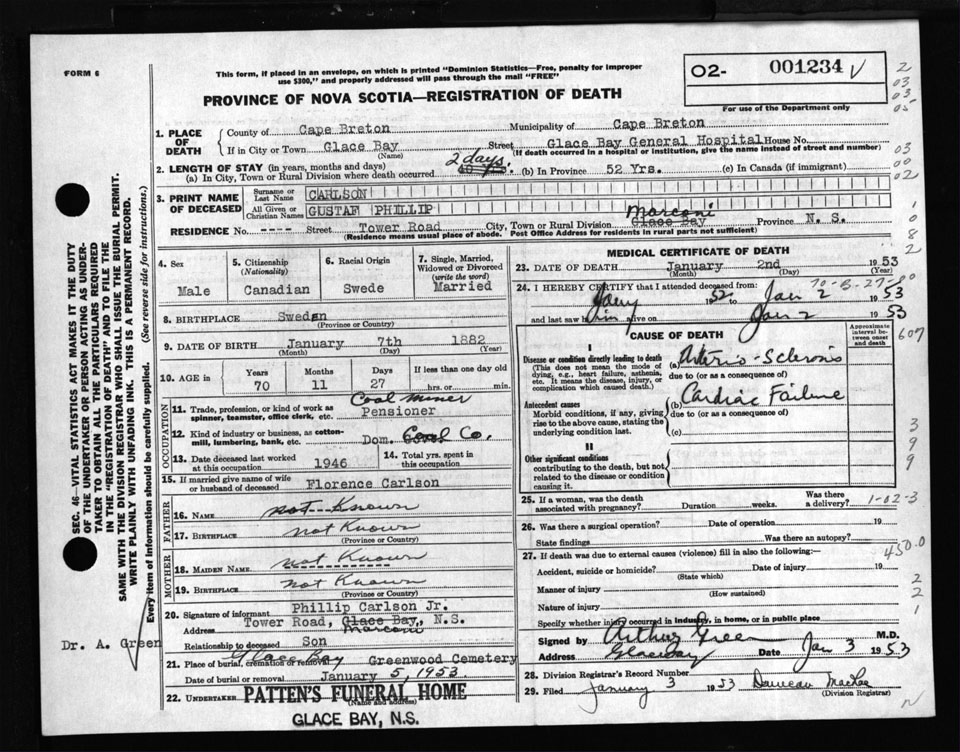 FORM 6
This form, if placed in an envelope, on which is printed "Dominion Statistics—Free, penalty for improper
use $300," and properly addressed will pass through the mail "FREE"
02- 001234 V
For use of the Department only
PROVINCE OF NOVA SCOTIA—REGISTRATION OF DEATH
1. PLACE OF DEATH
County of Cape Breton Municipality of Cape Breton
If in City or Town Glace Bay Street Glace Bay General Hospital House No.
(Name) (If death occurred in a hospital or institution, give the name instead of street and number)
2. LENGTH OF STAY (in years, months and days)
(a) In City, Town or Rural Division where death occurred 2 days. (b) In Province 52 Yrs. (c) In Canada (if immigrant)
3. PRINT NAME OF DECEASED
Surname or Last Name CARLSON
All Given or Christian Names GUSTAF PHILLIP
Marconi
RESIDENCE No. ---- Street Tower Road City, Town or Rural Division Glace Bay Province N. S.
(Residence means usual place of abode. Post Office Address for residents in rural parts not sufficient)
4. Sex Male
5. Citizenship (Nationality) Canadian
6. Racial Origin Swede
7. Single, Married, Widowed or Divorced (write the word) Married
8. BIRTHPLACE Sweden
(Province or Country)
9. DATE OF BIRTH January 7th 1882
(Month) (Day) (Year)
10. AGE in Years Months Days If less than one day old
70 11 27 hrs. or min.
OCCUPATION
Coal Miner
11. Trade, profession, or kind of work as spinner, teamster, office clerk, etc. Pensioner
12. Kind of industry or business, as cotton-mill, lumbering, bank, etc. Dom. Coal Co.
13. Date deceased last worked at this occupation 1946
14. Total yrs. spent in this occupation
15. If married give name of wife or husband of deceased Florence Carlson
FATHER
16. NAME not Known
17. BIRTHPLACE not Known
(Province or Country)
MOTHER
18. MAIDEN NAME not Known
19. BIRTHPLACE not Known
(Province or Country)
20. Signature of informant Phillip Carlson Jr.
Address Tower Road, Glace Bay, N.S.
Marconi
Relationship to deceased Son
21. Place of burial, cremation or removal Glace Bay Greenwood Cemetery
Date of burial or removal January 5, 1953
22. UNDERTAKER PATTEN'S FUNERAL HOME
(Name and address)
GLACE BAY, N.S.
MEDICAL CERTIFICATE OF DEATH
23. DATE OF DEATH January 2nd 1953
(Month) (Day) (Year)
24. I HEREBY CERTIFY that I attended deceased from:
Jany 1952 to Jan 2 1953
and last saw him alive on Jan 2 1953
CAUSE OF DEATH
Approximate interval between onset and death
I
Disease or condition directly leading to death
(This does not mean the mode of dying, e.g., heart failure, asthenia, etc. It means the disease, injury, or complication which caused death.)
(a) Arterio-Sclerosis
due to (or as a consequence of)
Antecedent causes
Morbid conditions, if any, giving rise to the above cause, stating the underlying condition last.
(b) Cardiac Failure
due to (or as a consequence of)
(c)
II
Other significant conditions
contributing to the death, but not related to the disease or condition causing it.
25. If a woman, was the death associated with pregnancy? Duration weeks. Was there a delivery?
26. Was there a surgical operation? Date of operation 19
State findings Was there an autopsy?
27. If death was due to external causes (violence) fill in also the following:
Accident, suicide or homicide? Date of injury 19
(State which)
Manner of injury
(How sustained)
Nature of injury
Specify whether injury occurred in industry, in home, or in public place
Signed by Arthur Green M.D.
Address Glace Bay Date Jan 3 1953
28. Division Registrar's Record Number
29. Filed January 3 1953
(Division Registrar)
SEC. 46—VITAL STATISTICS ACT MAKES IT THE DUTY
OF THE UNDERTAKER OR PERSON ACTING AS UNDER-
TAKER TO OBTAIN ALL THE PARTICULARS REQUIRED
IN THE "REGISTRATION OF DEATH" AND TO FILE THE
SAME WITH THE DIVISION REGISTRAR WHO SHALL ISSUE THE BURIAL PERMIT.
WRITE PLAINLY WITH UNFADING INK. THIS IS A PERMANENT RECORD.
Every item of Information should be carefully supplied. (See reverse side for instructions.)
Dr. A. Green
2
03
03
05
03
00
02
1
0
8
2
607
3
9
9
1-02-3
450.0
2
2
1